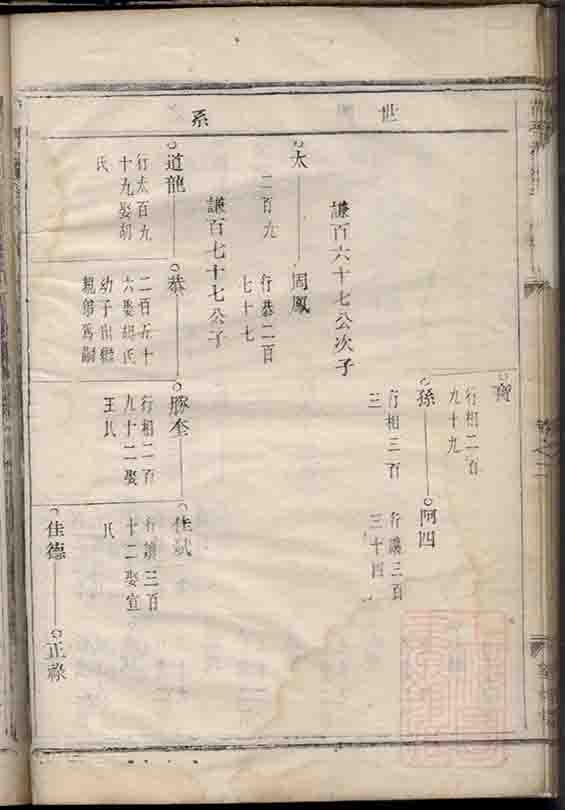 世系
寶
行相二百
九十九
孫
行相三百
三
阿四
行讓三百
三十四
謙百六十七公次子
太
二百九
周鳳
行恭二百
七十七
謙百七十七公子
道龍
行太百九
十九娶胡
氏
恭
二百五十
六娶胡氏
幼子出繼
親弟為嗣
豚奎
行相二百
九十二娶
王氏
佳斌
行讓三百
十二娶宣
氏
佳德
正祿